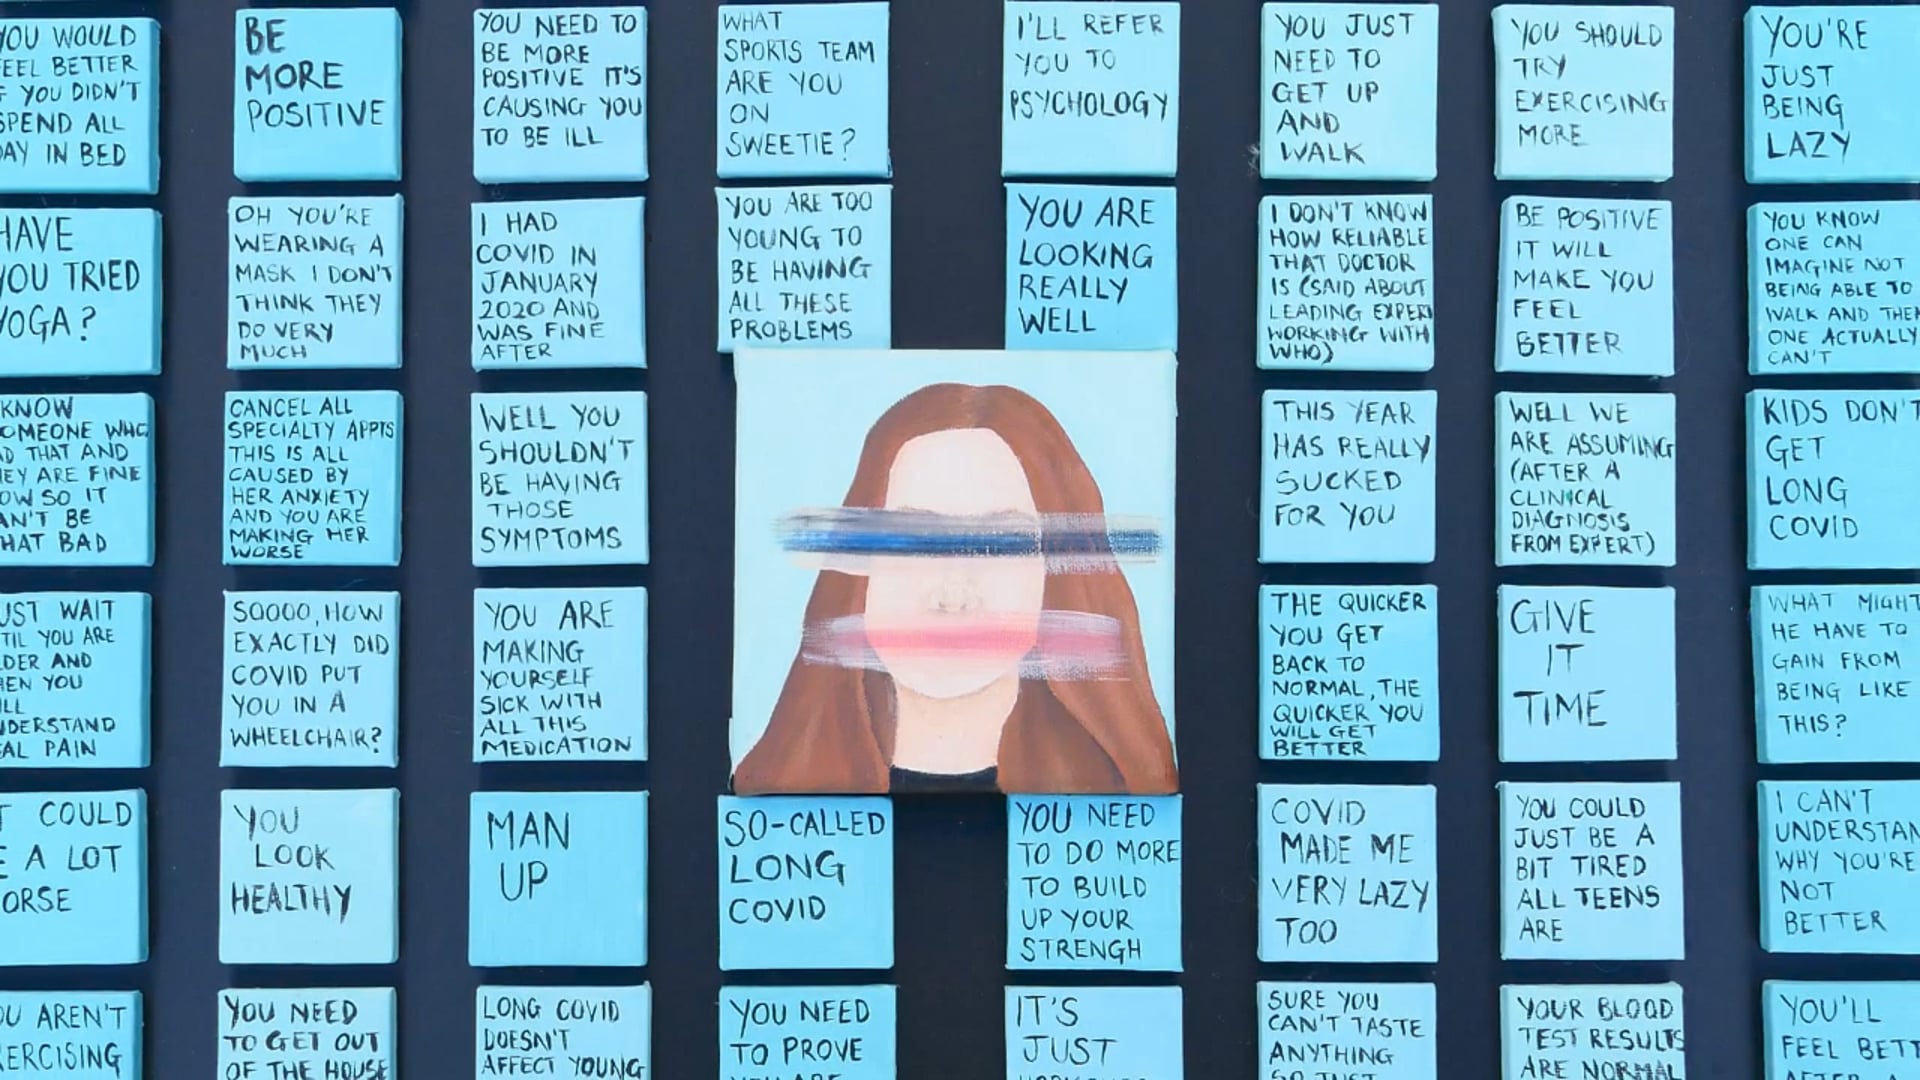 YOU WOULD
FEEL BETTER
IF YOU DIDN'T
SPEND ALL
DAY IN BED
BE
MORE
POSITIVE
YOU NEED TO
BE MORE
POSITIVE IT'S
CAUSING YOU
TO BE ILL
WHAT
SPORTS TEAM
ARE YOU
ON
SWEETIE?
I'LL REFER
YOU TO
PSYCHOLOGY
YOU JUST
NEED TO
GET UP
AND
WALK
YOU SHOULD
TRY
EXERCISING
MORE
YOU'RE
JUST
BEING
LAZY
HAVE
YOU TRIED
YOGA?
OH YOU'RE
WEARING A
MASK I DON'T
THINK THEY
DO VERY
MUCH
I HAD
COVID IN
JANUARY
2020 AND
WAS FINE
AFTER
YOU ARE TOO
YOUNG TO
BE HAVING
ALL THESE
PROBLEMS
YOU ARE
LOOKING
REALLY
WELL
I DON'T KNOW
HOW RELIABLE
THAT DOCTOR
IS (SAID ABOUT
LEADING EXPERT
WORKING WITH
WHO)
BE POSITIVE
IT WILL
MAKE YOU
FEEL
BETTER
YOU KNOW
ONE CAN
IMAGINE NOT
BEING ABLE TO
WALK AND THEN
ONE ACTUALLY
CAN'T
KNOW
SOMEONE WHO
HAD THAT AND
THEY ARE FINE
NOW SO IT
CAN'T BE
THAT BAD
CANCEL ALL
SPECIALTY APPTS
THIS IS ALL
CAUSED BY
HER ANXIETY
AND YOU ARE
MAKING HER
WORSE
WELL YOU
SHOULDN'T
BE HAVING
THOSE
SYMPTOMS
THIS YEAR
HAS REALLY
SUCKED
FOR YOU
WELL WE
ARE ASSUMING
(AFTER A
CLINICAL
DIAGNOSIS
FROM EXPERT)
KIDS DON'T
GET
LONG
COVID
JUST WAIT
UNTIL YOU ARE
OLDER AND
THEN YOU
WILL
UNDERSTAND
REAL PAIN
SOOOO, HOW
EXACTLY DID
COVID PUT
YOU IN A
WHEELCHAIR?
YOU ARE
MAKING
YOURSELF
SICK WITH
ALL THIS
MEDICATION
THE QUICKER
YOU GET
BACK TO
NORMAL, THE
QUICKER YOU
WILL GET
BETTER
GIVE
IT
TIME
WHAT MIGHT
HE HAVE TO
GAIN FROM
BEING LIKE
THIS?
IT COULD
BE A LOT
WORSE
YOU
LOOK
HEALTHY
MAN
UP
SO-CALLED
LONG
COVID
YOU NEED
TO DO MORE
TO BUILD
UP YOUR
STRENGH
COVID
MADE ME
VERY LAZY
TOO
YOU COULD
JUST BE A
BIT TIRED
ALL TEENS
ARE
I CAN'T
UNDERSTAND
WHY YOU'RE
NOT
BETTER
YOU AREN'T
EXERCISING
YOU NEED
TO GET OUT
OF THE HOUSE
LONG COVID
DOESN'T
AFFECT YOUNG
YOU NEED
TO PROVE
YOU ARE
IT'S
JUST
SURE YOU
CAN'T TASTE
ANYTHING
SO JUST
YOUR BLOOD
TEST RESULTS
ARE NORMAL
YOU'LL
FEEL BETTER
AFTER A